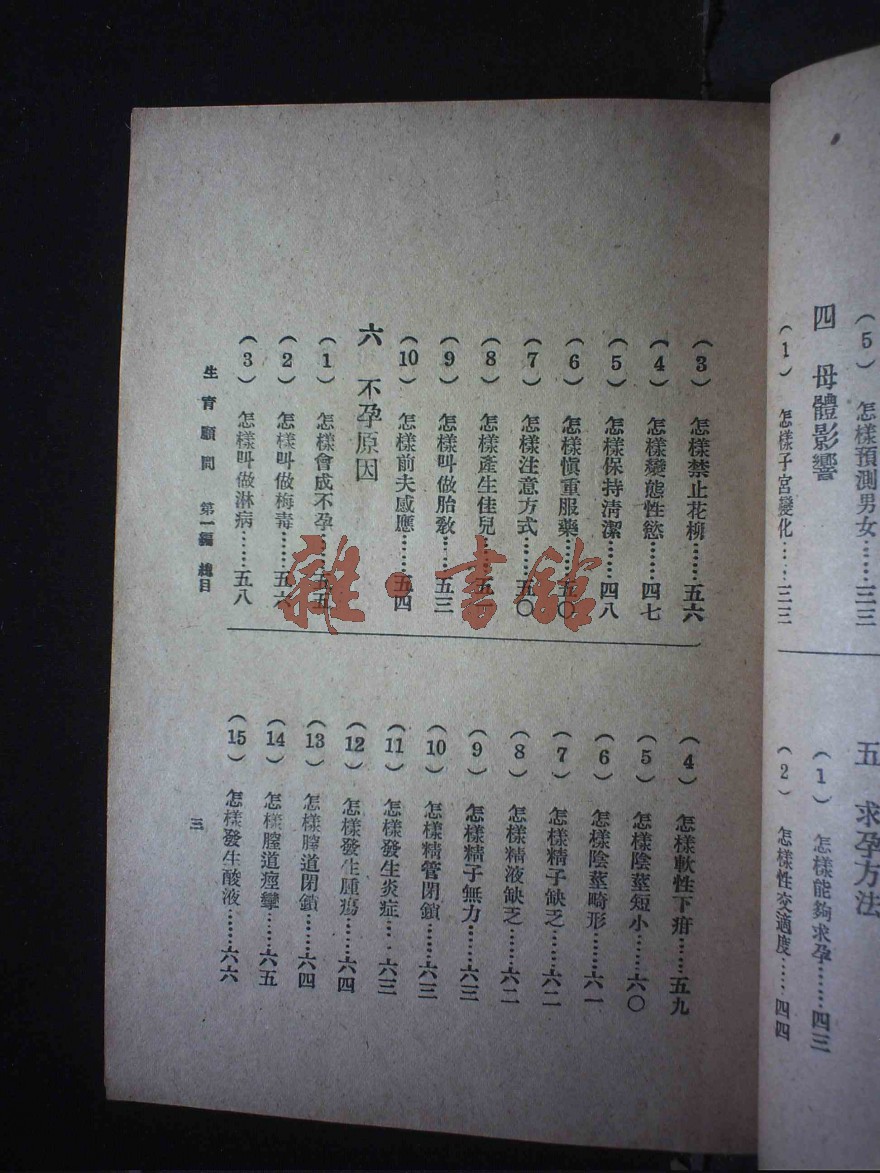 (5) 怎樣預測男女……三三
四 母體影響
(1) 怎樣子宮變化……三三
五 求孕方法
(1) 怎樣能夠求孕……四三
(2) 怎樣性交適度……四四
(3) 怎樣禁止花柳……五六
(4) 怎樣變態性慾……四七
(5) 怎樣保持清潔……四八
(6) 怎樣慎重服藥……五〇
(7) 怎樣注意方式……五〇
(8) 怎樣產生佳兒……五一
(9) 怎樣叫做胎教……五三
(10) 怎樣前夫感應……五四
六 不孕原因
(1) 怎樣會成不孕……五五
(2) 怎樣叫做梅毒……五六
(3) 怎樣叫做淋病……五八
(4) 怎樣軟性下疳……五九
(5) 怎樣陰莖短小……六〇
(6) 怎樣陰莖畸形……六一
(7) 怎樣精子缺乏……六二
(8) 怎樣精液缺乏……六二
(9) 怎樣精子無力……六三
(10) 怎樣精管閉鎖……六三
(11) 怎樣發生炎症……六三
(12) 怎樣發生腫瘍……六四
(13) 怎樣膣道閉鎖……六四
(14) 怎樣膣道痙攣……六五
(15) 怎樣發生酸液……六六
生育顧問 第一編 總目
三
雜·書館